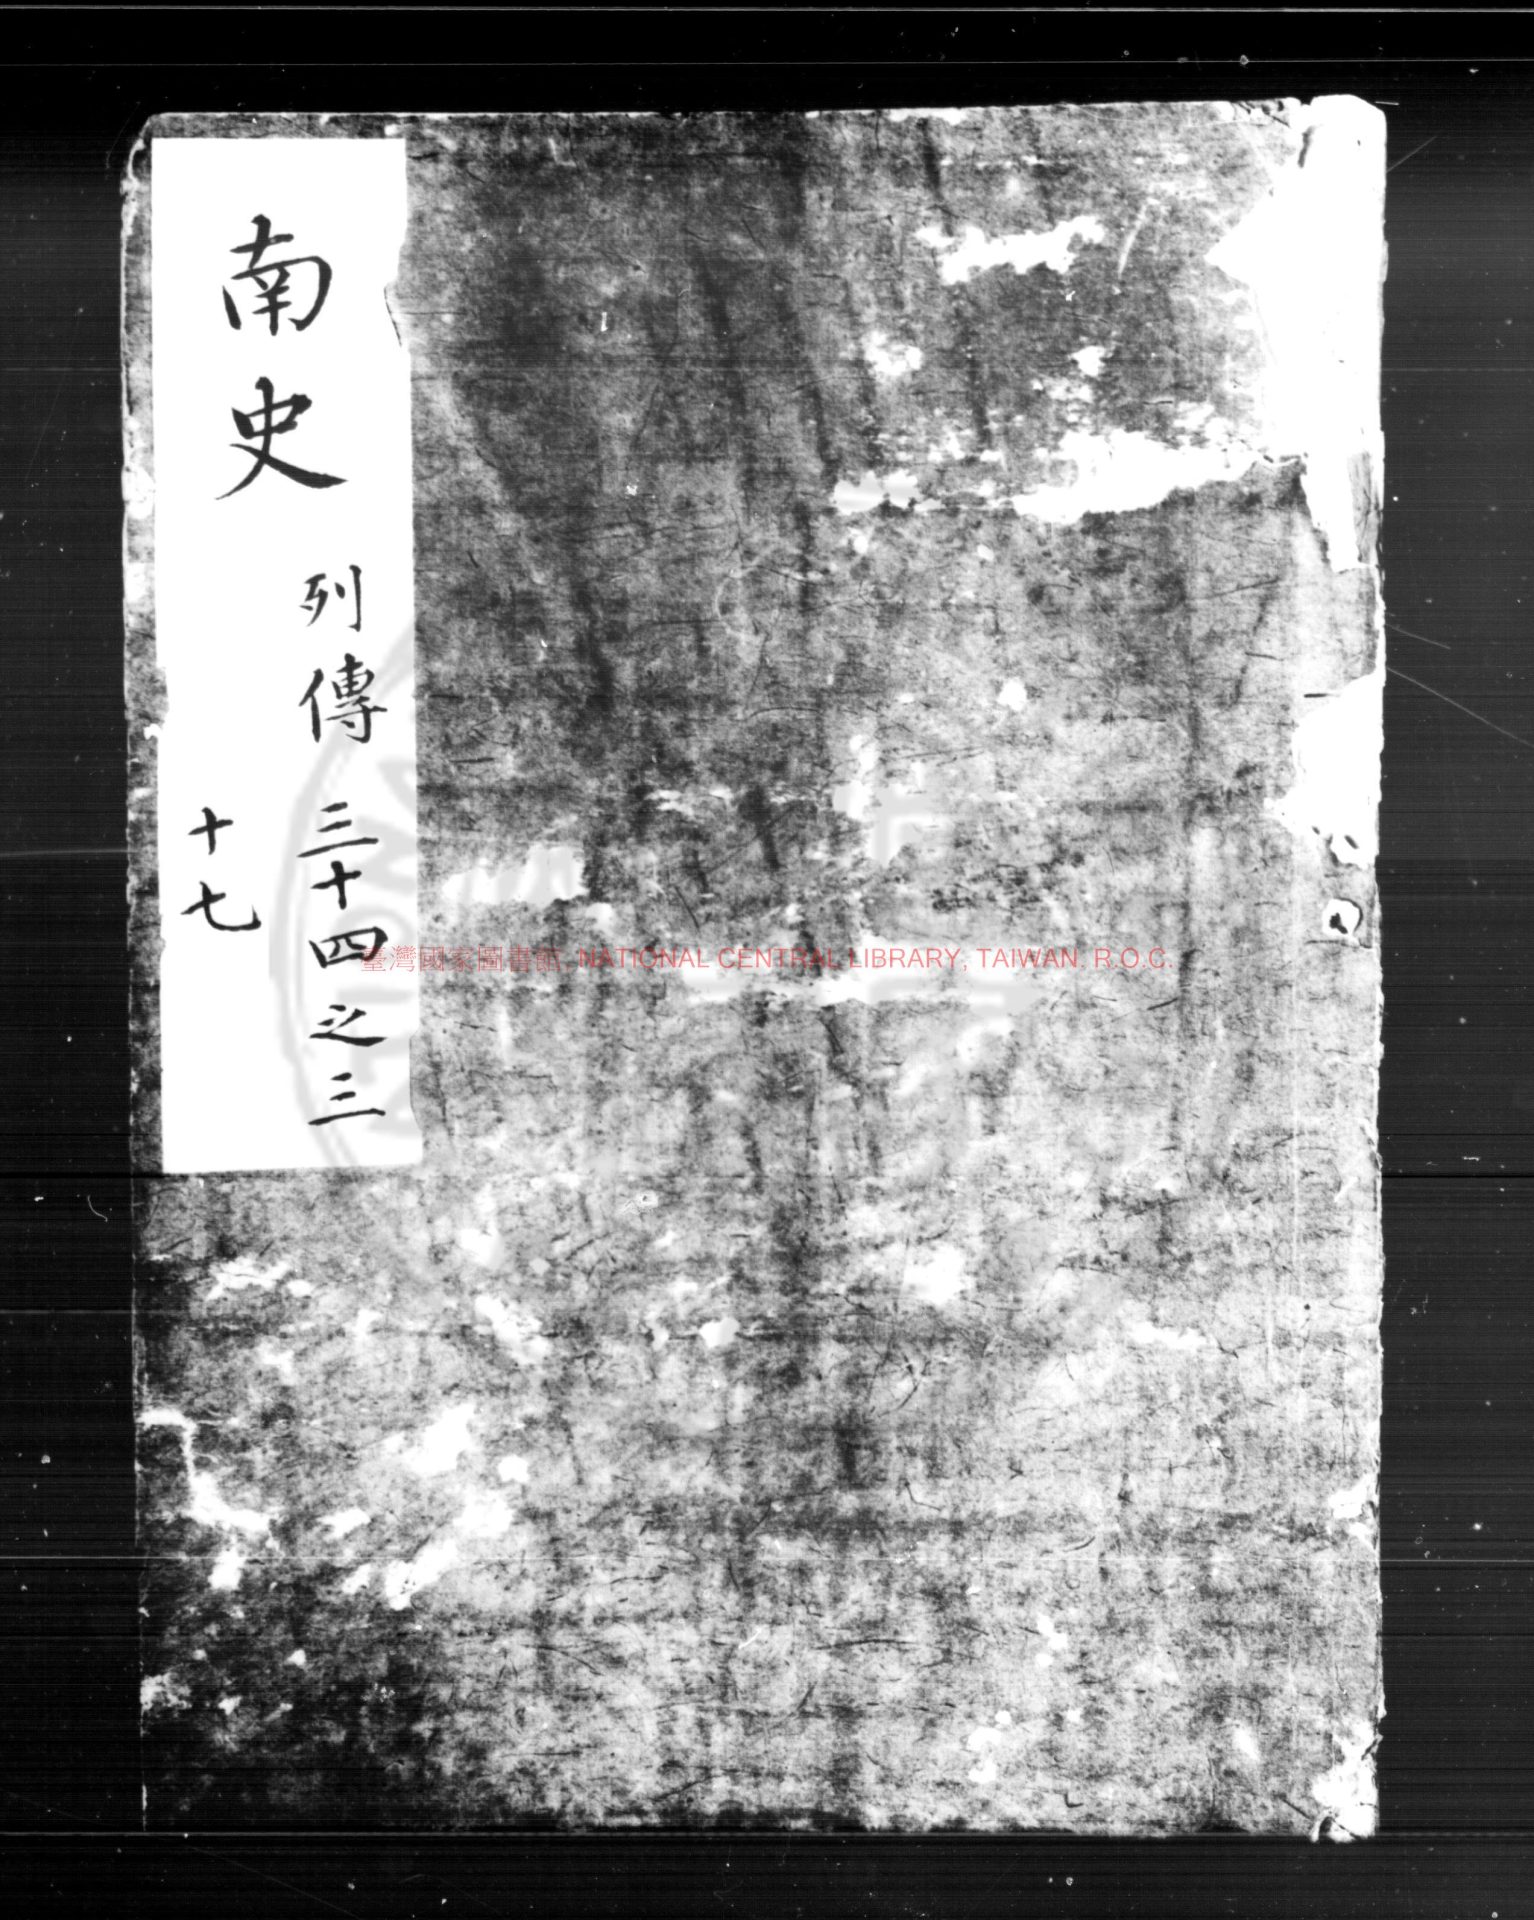 南史
列傳 三十四之三
十七
臺灣國家圖書館, NATIONAL CENTRAL LIBRARY, TAIWAN. R.O.C.